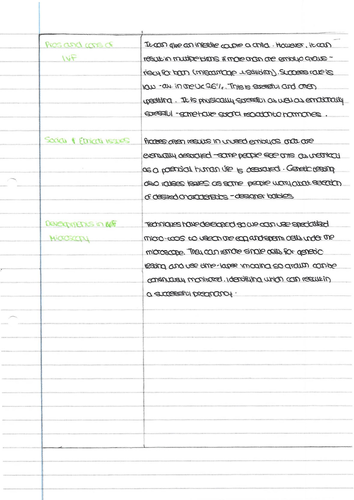 Pros and cons of
IVF
It can give an infertile couple a child. However, it can
result in multiple births if more than one embryo grows -
risky for both (miscarriage + stillborn). Success rate is
low - in the UK 26%. This is stressful and often
upsetting. It is physically stressful as well as emotionally
stressful - some have a bad reaction to hormones.
Social & Ethical issues
Process often results in unused embryos that are
eventually destroyed - some people see this as unethical
as a potential human life is destroyed. Genetic testing
also raises issues as some people worry about selection
of desired characteristics - designer babies.
Developments in IVF
Microscopy
Techniques have developed so we can use specialised
micro-tools to use on the egg and sperm cells under the
microscope. They can remove single cells for genetic
testing and use time-lapse imaging so growth can be
continuously monitored, identifying which can result in
a successful pregnancy.